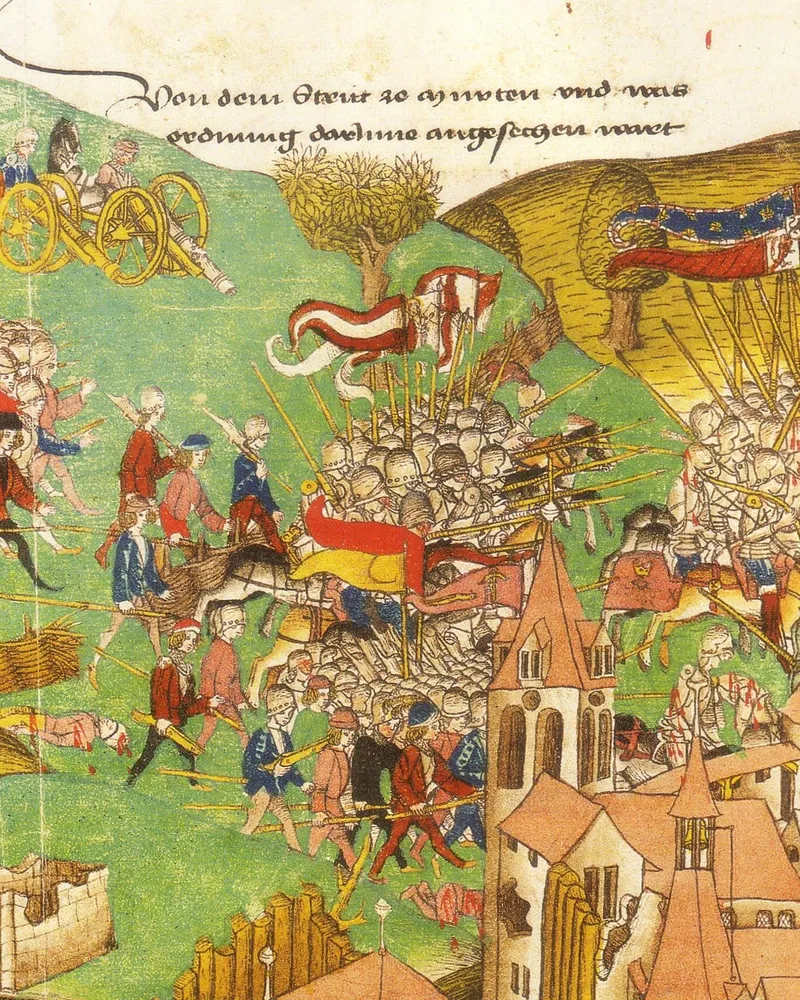 Von dem Strit ze Murten vnd was
ordnung darInne angesechen wart